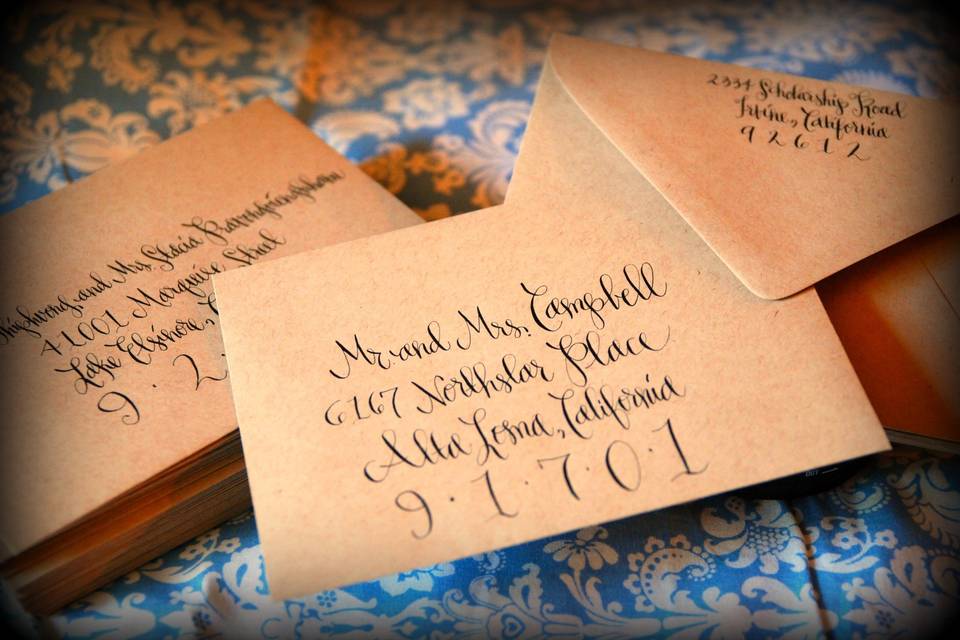 2334 Scholarship Road
Irvine, California
9 2 6 1 2
and Mrs. Stacia
41001 Marquise
Lake Elsinore,
9 · 2
Mr. and Mrs. Campbell
6167 Northstar Place
Alta Loma, California
9 · 1 · 7 · 0 · 1